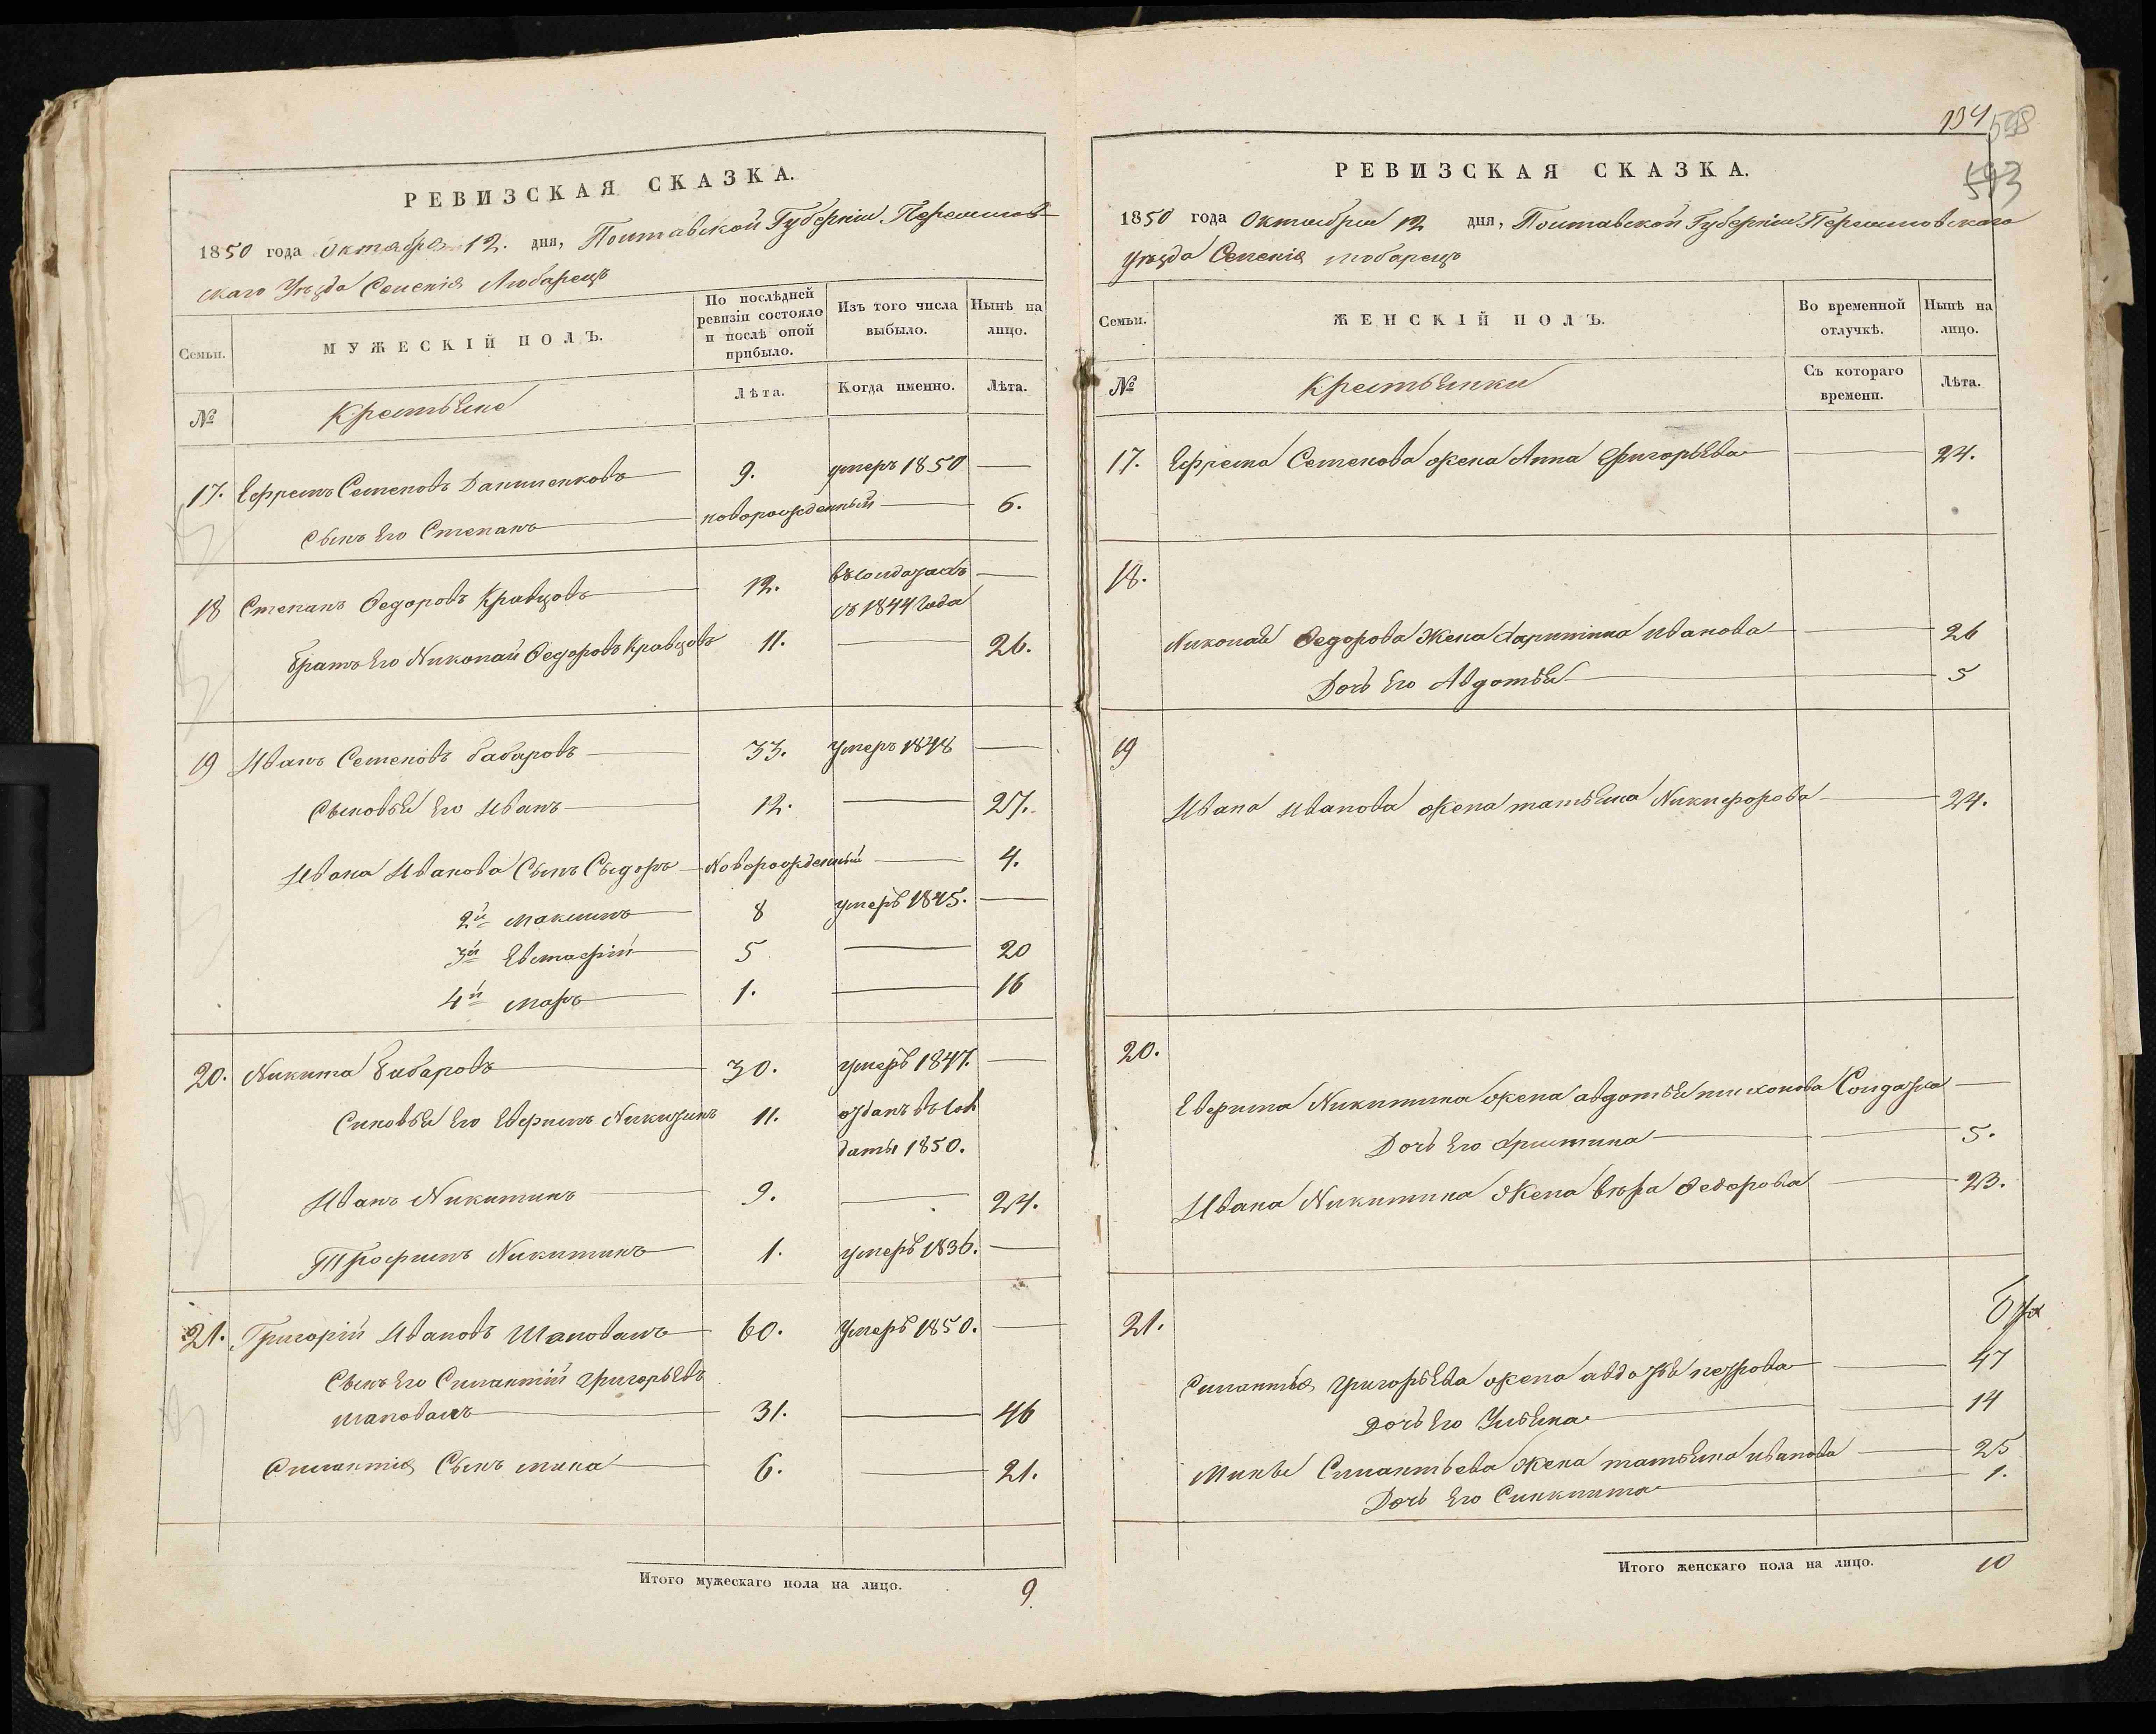 РЕВИЗСКАЯ СКАЗКА.
1850 года Октября 12. дня, Полтавской Губернiи. Переяслов-
скаго Уѣзда Селенiя Любарецъ
Семьи.
МУЖЕСКІЙ ПОЛЪ.
По послѣдней ревизіи состояло и послѣ оной прибыло.
Изъ того числа выбыло.
Нынѣ на лицо.
№
Крестьяне
Лѣта.
Когда именно.
Лѣта.
17. Ефремъ Семеновъ Даниленковъ 9. умеръ 1850 —
Сынъ Его Степанъ новорожденный — 6.
18 Степанъ Федоровъ Кравцовъ 12. въ солдатахъ —
съ 1844 года
братъ Его Николай Федоровъ Кравцовъ 11. — 26.
19 Иванъ Семеновъ бабаровъ 33. умеръ 1848 —
Сыновья Его Иванъ 12. — 27.
Ивана Иванова Сынъ Сыдоръ Новорожденный — 4.
2й Максимъ 8 умеръ 1845. —
3й Евстафiй 5 — 20
4й Маръ 1. — 16
20. Никита бабаровъ 30. умеръ 1847. —
Синовья Его Евфимъ Никитинъ 11. отданъ въ Сол
даты 1850.
Иванъ Никитинъ 9. — 24.
Трофимъ Никитинъ 1. умеръ 1836. —
21. Григорiй Ивановъ Шаповалъ 60. Умеръ 1850. —
Сынъ Его Силантiй Григорьевъ
Шаповалъ 31. — 46
Силантiя Сынъ мина 6. — 21.
Итого мужескаго пола на лицо. 9.
134
598
593
РЕВИЗСКАЯ СКАЗКА.
1850 года Октября 12 дня, Полтавской Губернiи Переясловскаго
уѣзда Селенiя любарецъ
Семьи.
ЖЕНСКІЙ ПОЛЪ.
Во временной отлучкѣ.
Нынѣ на лицо.
№
Крестьянки
Съ котораго времени.
Лѣта.
17. Ефрема Семенова жена Анна Григорьева — 24.
18.
Николая Федорова Жена Харитина иванова — 26
Дочь Его Авдотья — 5
19
Ивана иванова жена татьяна Никифорова — 24.
20.
Евфима Никитина жена авдотья тихонова Солдатка —
Дочь Его Христина — 5.
Ивана Никитина Жена вѣра Федорова — 23.
21.
Силантiя григорьева жена авдотья петрова — 47
Дочь Его Ульяна — 14
Мины Силантьева Жена татьяна иванова — 25
Дочь Его Синклита 1.
Итого женскаго пола на лицо. 10